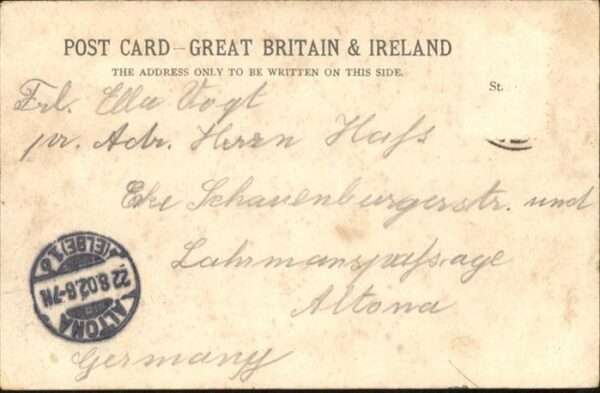 POST CARD–GREAT BRITAIN & IRELAND
THE ADDRESS ONLY TO BE WRITTEN ON THIS SIDE.
St.
Frl. Ella Vogt
pr. Adr. Herrn Hafs
Ecke Schauenburgerstr. und
Lahrmanspassage
Altona
Germany
ALTONA
22.8.02.6-7N.
(ELBE) 1